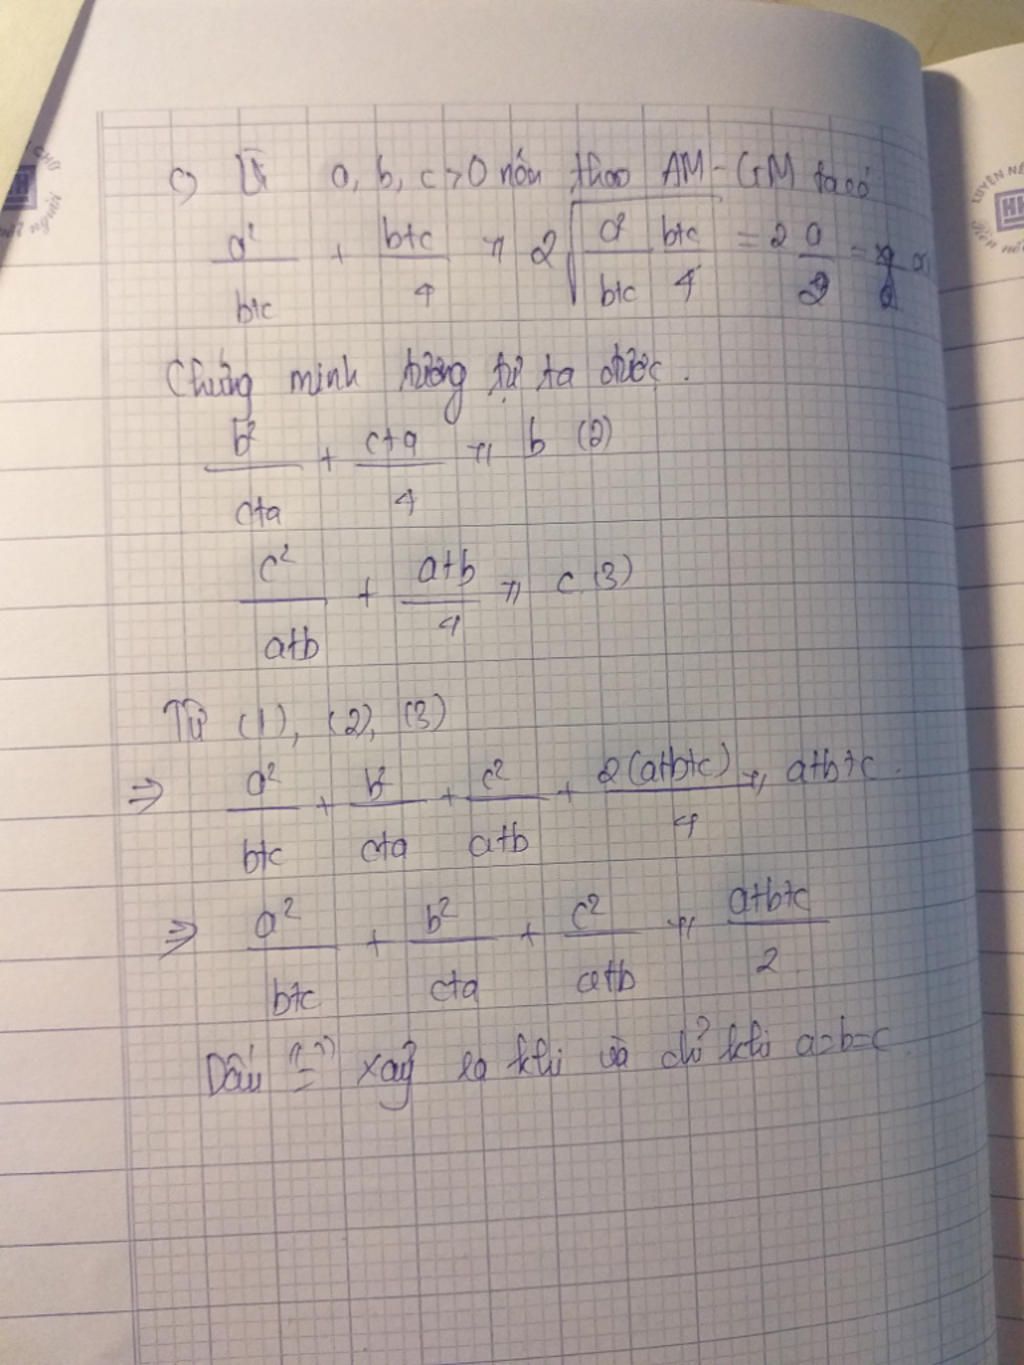 c) Vì a, b, c > 0 nên theo AM-GM ta có
a²/(b+c) + (b+c)/4 ≥ 2√(a²/(b+c) (b+c)/4) = 2 a/2 = a
Chứng minh tương tự ta được.
b²/(c+a) + (c+a)/4 ≥ b (2)
c²/(a+b) + (a+b)/4 ≥ c (3)
Từ (1), (2), (3)
⇒ a²/(b+c) + b²/(c+a) + c²/(a+b) + 2(a+b+c)/4 ≥ a+b+c.
⇒ a²/(b+c) + b²/(c+a) + c²/(a+b) ≥ (a+b+c)/2
Dấu "=" xảy ra khi và chỉ khi a=b=c
LUYỆN NÉ
HH